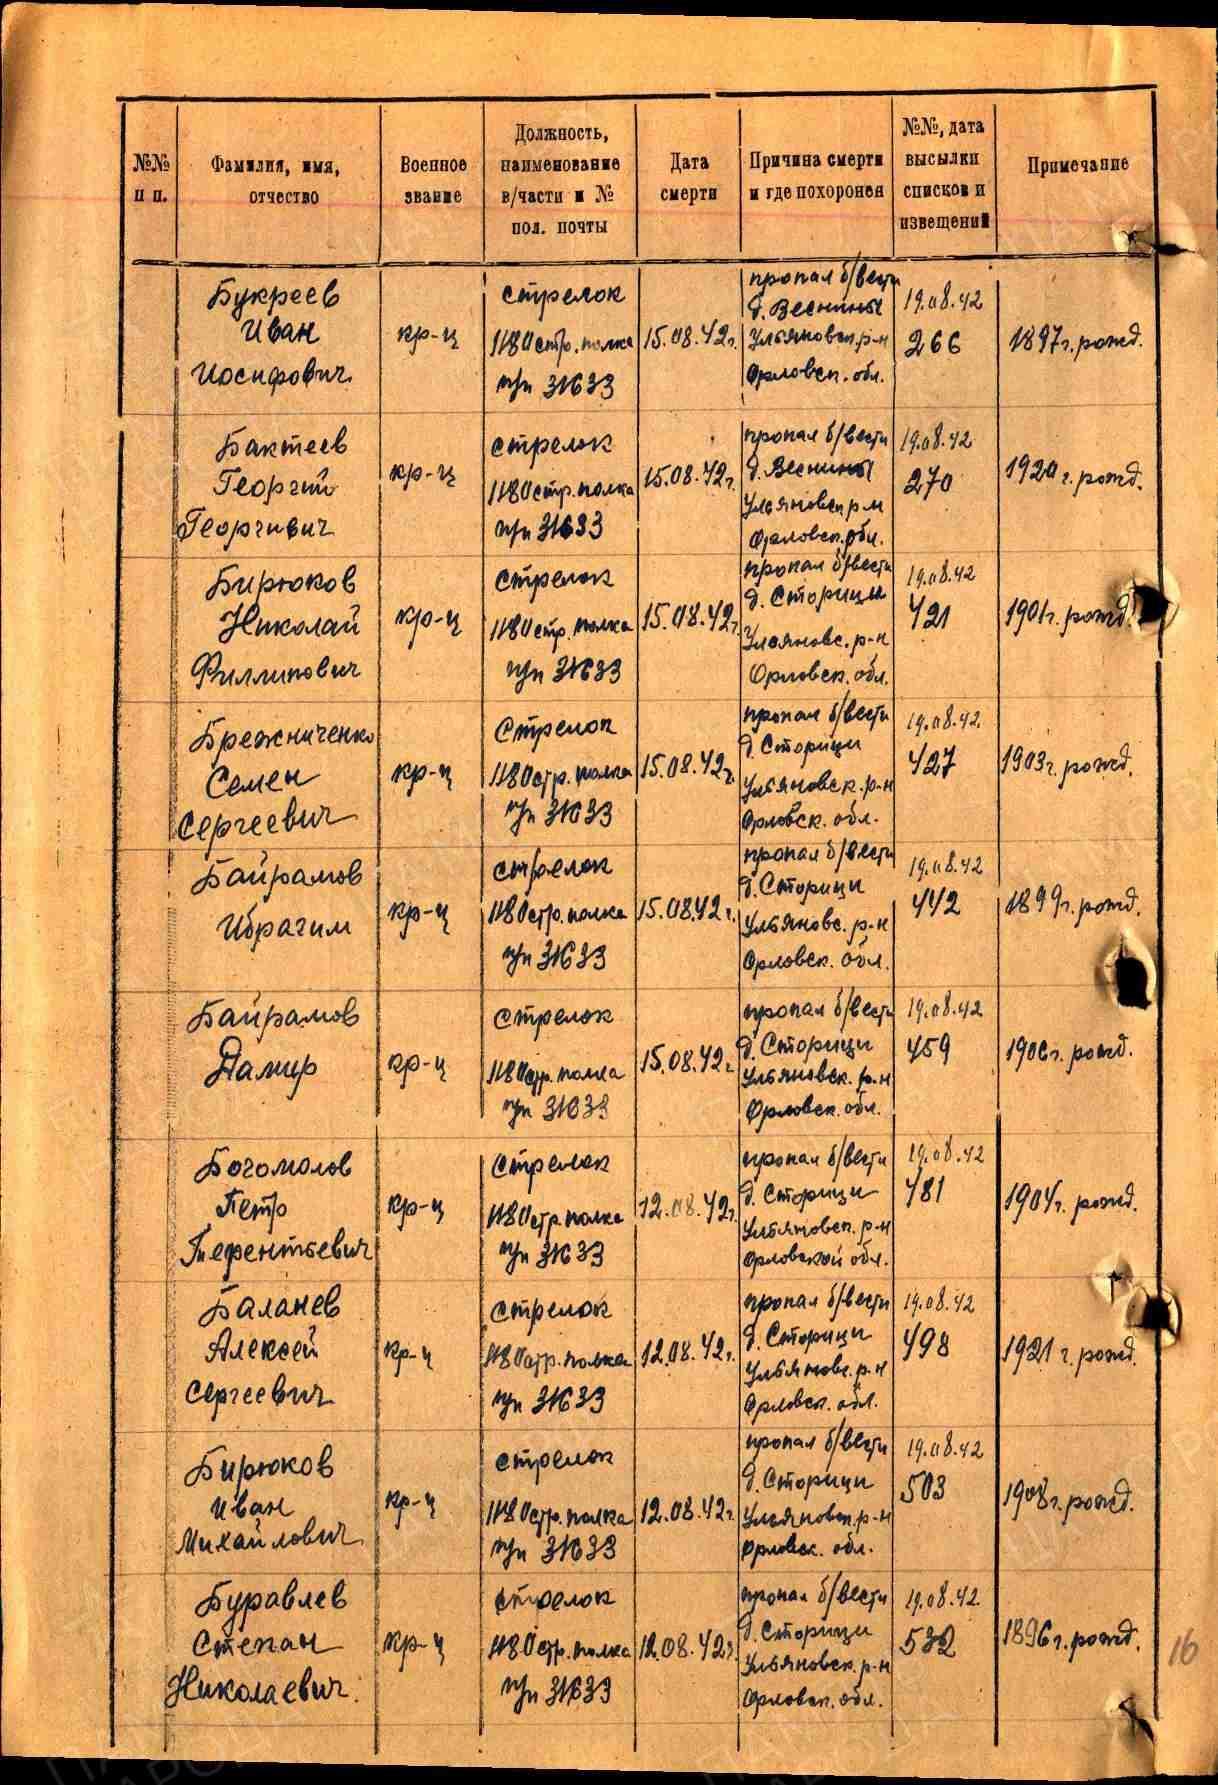 №№ п п.
Фамилия, имя, отчество
Военное звание
Должность, наименование в/части и № пол. почты
Дата смерти
Причина смерти и где похоронен
№№, дата высылки списков и извещений
Примечание
Букреев
Иван
Иосифович
кр-ц
стрелок
1180 стр. полка
п/п 31633
15.08.42 г.
пропал б/вести
д. Веснины
Ульяновск. р-н
Орловск. обл.
19.08.42
266
1897 г. рожд.
Бактеев
Георгий
Георгивич
кр-ц
стрелок
1180 стр. полка
п/п 31633
15.08.42 г.
пропал б/вести
д. Веснины
Ульяновск р-н
Орловск. обл.
19.08.42
270
1920 г. рожд.
Бирюков
Николай
Филлипович
кр-ц
стрелок
1180 стр. полка
п/п 31633
15.08.42 г.
пропал б/вести
д. Сторицы
Ульяновс. р-н
Орловск. обл.
19.08.42
421
1901 г. рожд.
Брежниченко
Семен
Сергеевич
кр-ц
Стрелок
1180 стр. полка
п/п 31633
15.08.42 г.
пропал б/вести
д. Сторицы
Ульяновск. р-н
Орловск. обл.
19.08.42
427
1903 г. рожд.
Байрамов
Ибрагим
кр-ц
стрелок
1180 стр. полка
п/п 31633
15.08.42 г.
пропал б/вести
д. Сторицы
Ульяновс. р-н
Орловск. обл.
19.08.42
442
1899 г. рожд.
Байрамов
Дамир
кр-ц
стрелок
1180 стр. полка
п/п 31633
15.08.42 г.
пропал б/вести
д. Сторицы
Ульяновск. р-н
Орловск. обл.
19.08.42
459
1906 г. рожд.
Богомолов
Петр
кр-ц
стрелок
1180 стр. полка
п/п 31633
12.08.42 г.
пропал б/вести
д. Сторицы
Ульяновск. р-н
Орловской обл.
19.08.42
481
1904 г. рожд.
Баланев
Алексей
Сергеевич
кр-ц
стрелок
1180 стр. полка
п/п 31633
12.08.42 г.
пропал б/вести
д. Сторицы
Ульяновс. р-н
Орловск. обл.
19.08.42
498
1921 г. рожд.
Бирюков
Иван
Михайлович
кр-ц
стрелок
1180 стр. полка
п/п 31633
12.08.42 г.
пропал б/вести
д. Сторицы
Ульяновск р-н
Орловск. обл.
19.08.42
503
1908 г. рожд.
Буравлев
Степан
Николаевич.
кр-ц
стрелок
1180 стр. полка
п/п 31633
12.08.42 г.
пропал б/вести
д. Сторицы
Ульяновск. р-н
Орловск. обл.
19.08.42
532
1896 г. рожд.
16